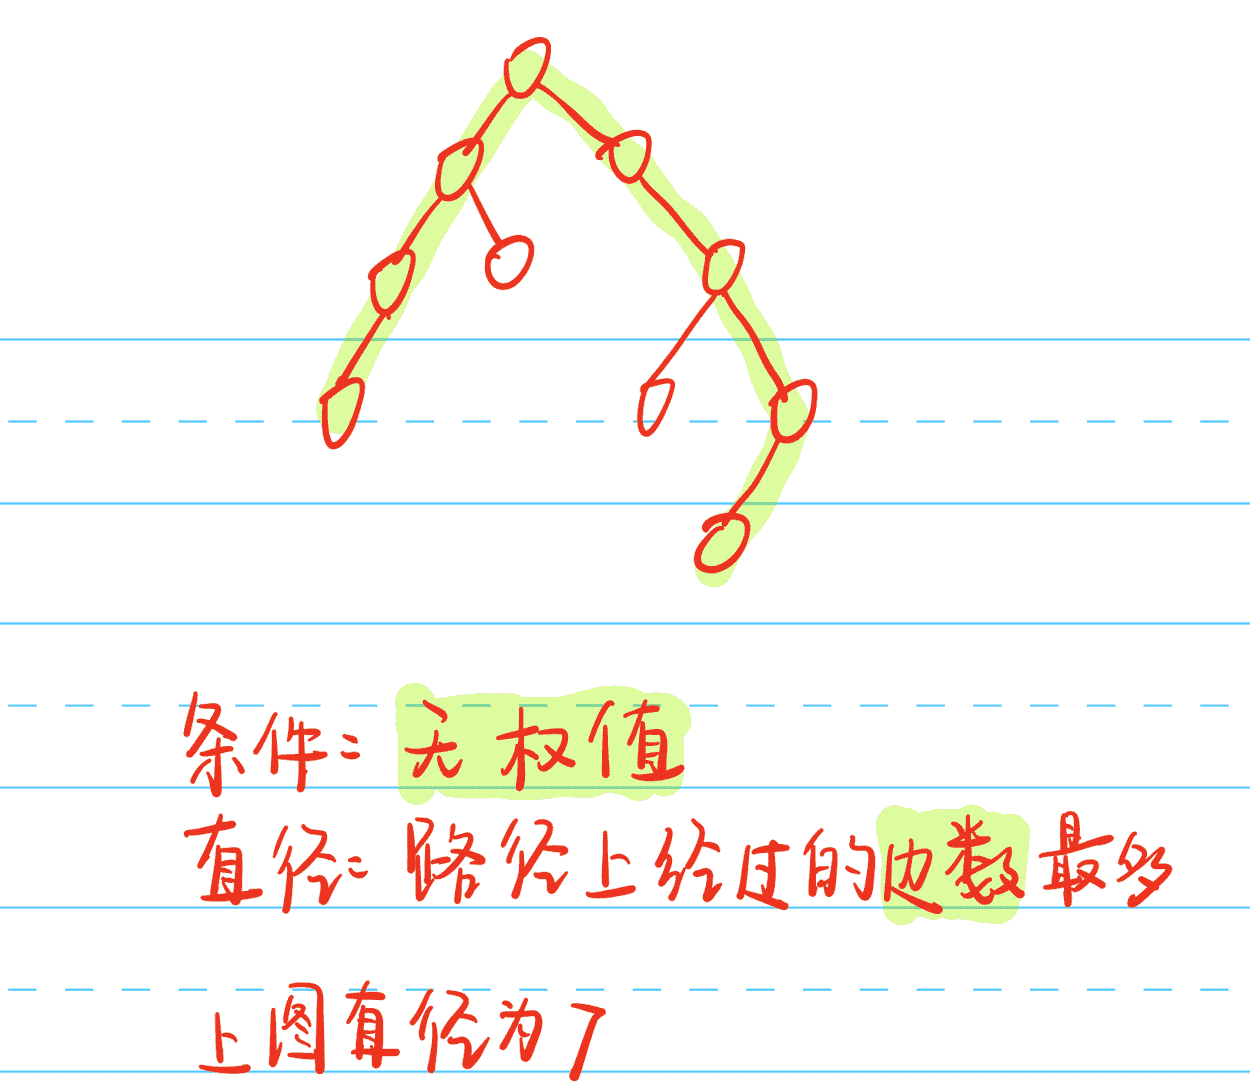 条件：无权值
直径：路径上经过的边数最多
上图直径为7